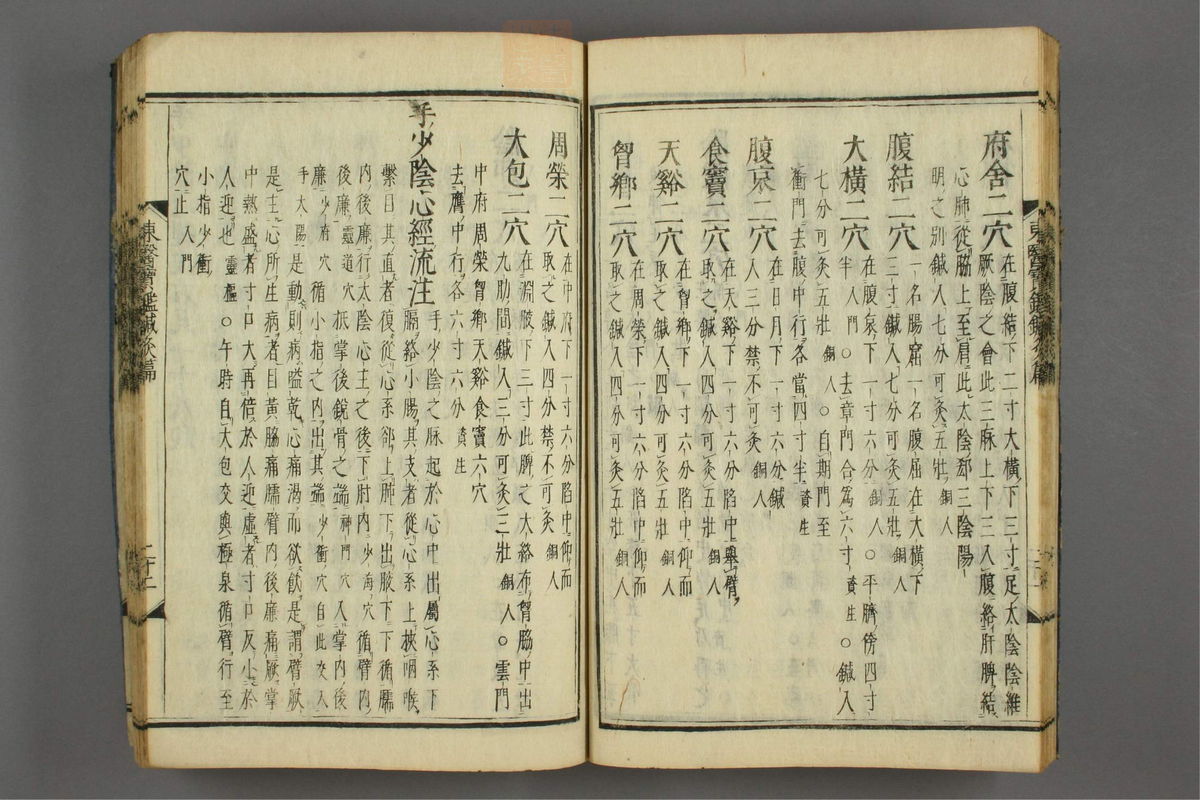 府舍二穴在腹結下二寸大橫下三寸足太陰陰維
厥陰之會此三脉上下三入腹絡肝脾結
心肺從脇上至肩此太陰郄三陰陽
明之別鍼入七分可灸五壯銅人
腹結二穴一名腸窟一名腹屈在大橫下
三寸鍼入七分可灸五壯銅人
大橫二穴在腹哀下一寸六分銅人○平臍傍四寸
半入門○去章門合爲六寸資生○鍼入
七分可灸五壯銅人○自期門至
衝門去腹中行各當四寸半資生
腹哀二穴在日月下一寸六分鍼
入三分禁不可灸銅人
食竇二穴在天谿下一寸六分陷中舉臂
取之鍼入四分可灸五壯銅人
天谿二穴在胷鄉下一寸六分陷中仰而
取之鍼入四分可灸五壯銅人
胷鄉二穴在周榮下一寸六分陷中仰而
取之鍼入四分可灸五壯銅人
東醫寶鑑鍼灸篇
周榮二穴在中府下一寸六分陷中仰而
取之鍼入四分禁不可灸銅人
大包二穴在淵腋下三寸此脾之大絡布胷脇中出
九肋間鍼入三分可灸三壯銅人○雲門
中府周榮胷鄉天谿食竇六穴
去膺中行各六寸六分資生
手少陰心經流注手少陰之脉起於心中出屬心系下
膈絡小腸其支者從心系上挾咽喉
繫目其直者復從心系却上肺下出腋下下循臑
內後廉行太陰心主之後下肘內少海穴循臂內
後廉靈道穴抵掌後銳骨之端神門穴入掌內後
廉少府穴循小指之內出其端少衝穴自此交入
手太陽是動則病嗌乾心痛渴而欲飲是謂臂厥
是主心所生病者目黃脇痛臑臂內後廉痛厥掌
中熱盛者寸口大再倍於人迎虛者寸口反小於
人迎也靈樞○午時自大包交與極泉循臂行至
小指少衝
穴止入門
東醫寶鑑鍼灸篇
二十二